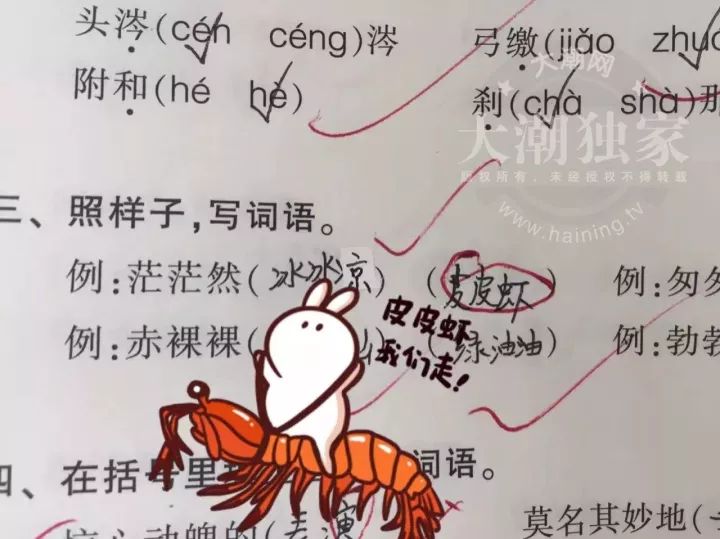 头涔(cén céng)涔 弓缴(jiǎo zhuó
附和(hé hè) 刹(chà shà)那
大潮网
大潮独家
版权所有，未经授权不得转载
www.haining.tv
三、照样子,写词语。
例:茫茫然(冰冰凉) (皮皮虾) 例:匆匆
皮皮虾
我们走!
例:赤裸裸( (绿油油) 例:勃勃
四、在括号里 词语。
动魄的(表演 莫名其妙地(